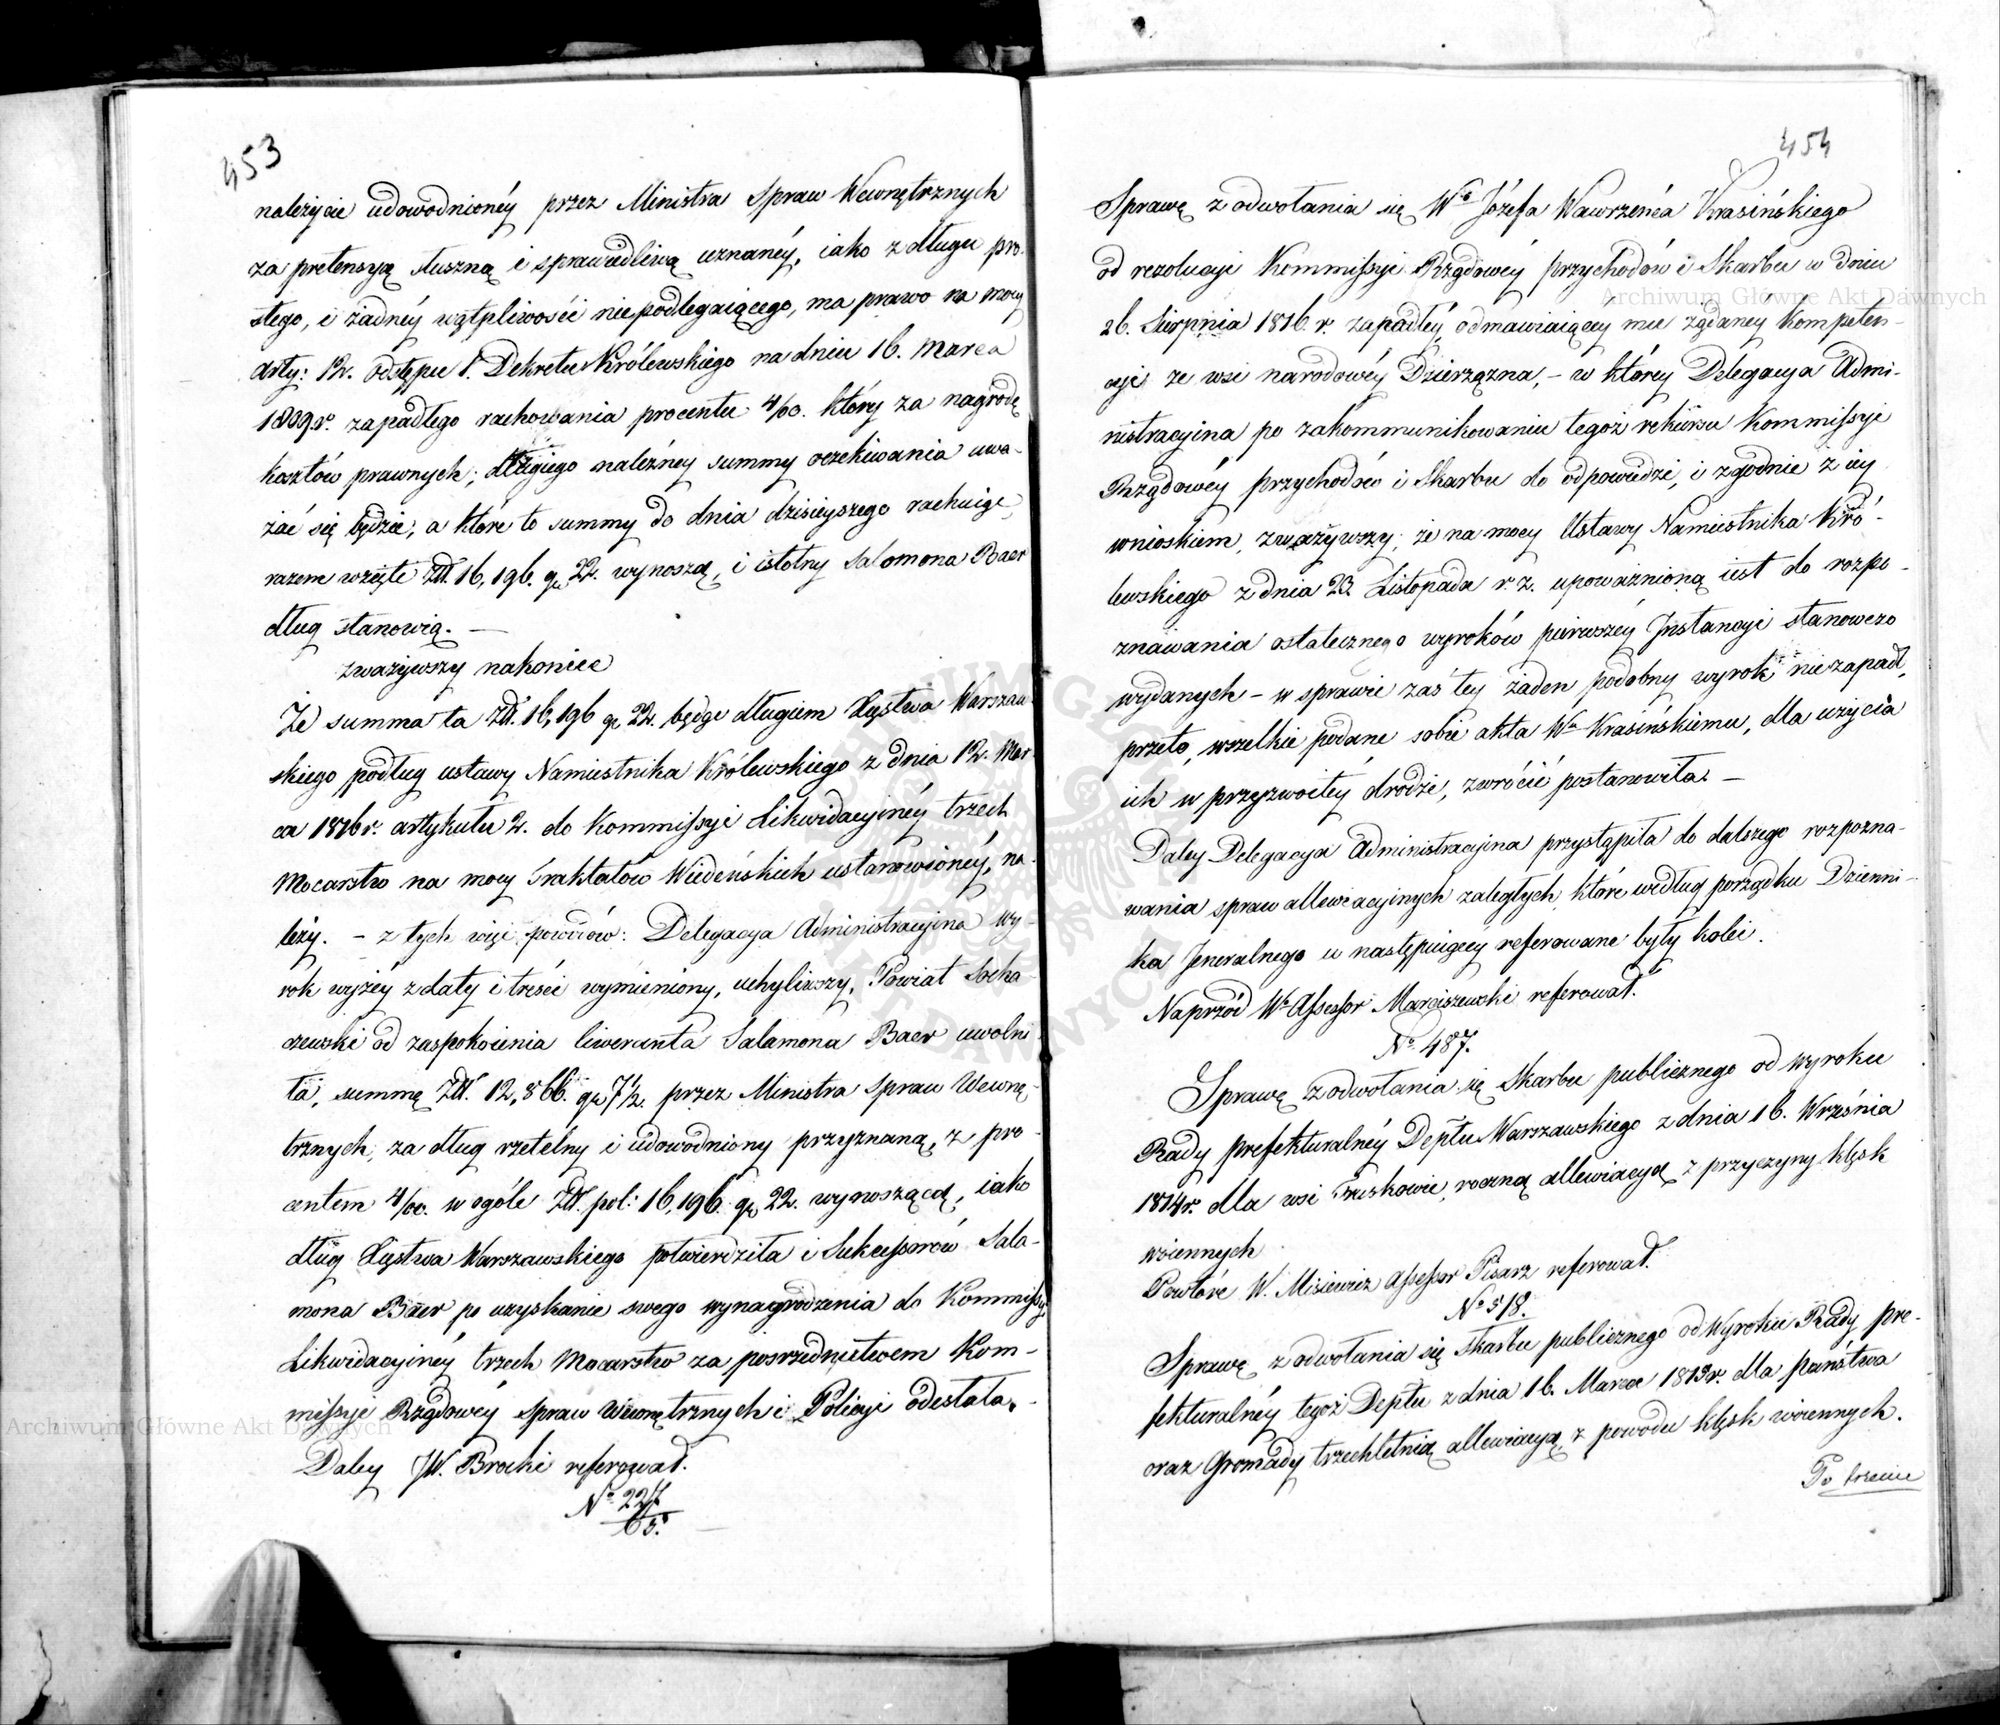 453
należycie udowodnionéy przez Ministra Spraw Wewnętrznych
za pretensyą słuszną i sprawiedliwą uznanéy, iako z długu pro-
stego, i żadnéy wątpliwośći niepodlegaiącego, ma prawo na mocy
arty: 12. odstępu 1. Dekretu Królewskiego na dniu 16. Marca
1809. r. zapadłego rachowania procentu 4/00. który za nagrodę
kosztów prawnych, długiego należney summy oczekiwania uwa-
żać się będzie, a które to summy do dnia dzisieyszego rachuiąc,
razem wzięte Złł. 16,196. gr 22. wynoszą, i istotny Salomona Baer
dług stanowią. —
zważywszy nakoniec
Że summa ta Złł. 16,196 gr 22. będąc długiem Xięstwa Warszaw-
skiego podług ustawy Namiestnika Królewskiego z dnia 12. Mar-
ca 1816 r. artykułu 2. do Kommissyi Likwidacyinéy trzech
Mocarstw na mocy Traktatów Wiedeńskich ustanowionéy, na-
leży. – z tych więc powodów: Delegacya Administracyina wy-
rok wyżéy z daty i treśći wymieniony, uchyliwszy, Powiat Socha-
czewski od zaspokoienia liweranta Salamona Baer uwolni-
ła, summę Złł. 12,866. gr 7½. przez Ministra Spraw Wewnę-
trznych, za dług rzetelny i udowodniony przyznaną, z pro-
centem 4/00. w ogóle Złł. pol: 16,196. gr 22. wynoszącą, iako
dług Xięstwa Warszawskiego potwierdziła i Sukcessorów Sala-
mona Baer po uzyskanie swego wynagrodzenia do Kommissyi
Likwidacyinéy trzech Mocarstw za pośrzednictwem Kom-
missyi Rządowéy Spraw Wewnętrznych i Policyi odesłała. -
Daley JW. Brocki referował.
No 227/65.
454
Sprawę z odwołania się Wo Józefa Wawrzeńca Krasińskiego
od rezolucyi Kommissyi Rządowéy przychodów i Skarbu w dniu
26. Sierpnia 1816. r. zapadłéy, odmawiaiącey mu żądaney Kompeten-
cyi ze wsi narodowéy Dzierzązna, – w którey Delegacya Admi-
nistracyina po zakommunikowaniu tegoż rekursu Kommissyi
Rządowéy przychodów i Skarbu do odpowiedzi, i zgodnie z iey
wnioskiem, zważywszy, że na mocy Ustawy Namiestnika Kró-
lewskiego z dnia 23. Listopada r. z. upoważnioną iest do rozpo-
znawania ostatecznego wyroków pierwszéy Instancyi stanowczo
wydanych – w sprawie zaś tey żaden podobny wyrok nie zapadł,
przeto, wszelkie podane sobie akta Wu Krasińskiemu, dla użycia
ich w przyzwoitéy drodze, zwrócić postanowiła. —
Daley Delegacya Administracyina przystąpiła do dalszego rozpozna-
wania spraw allewiacyinych zaległych, które według porządku Dzienni-
ka Jeneralnego w następuiącey referowane były kolei.
Naprzód Wo Assessor Marciszewski referował.
No 487.
Sprawę z odwołania się Skarbu publicznego od wyroku
Rady prefekturalnéy Deptu Warszawskiego z dnia 16. Września
1814 r. dla wsi Truskowie, roczną allewiacyą z przyczyny klęsk
woiennych
Powtóre W. Misiewicz Assessor Pisarz referował.
No 518.
Sprawę z odwołania się Skarbu publicznego od Wyroku Rady pre-
fekturalnéy tegoż Deptu z dnia 16. Marca 1813 r. dla państwa
oraz Gromady trzechletnią allewiacyą, z powodu klęsk woiennych.
Po trzecie
Archiwum Główne Akt Dawnych
Archiwum Główne Akt Dawnych